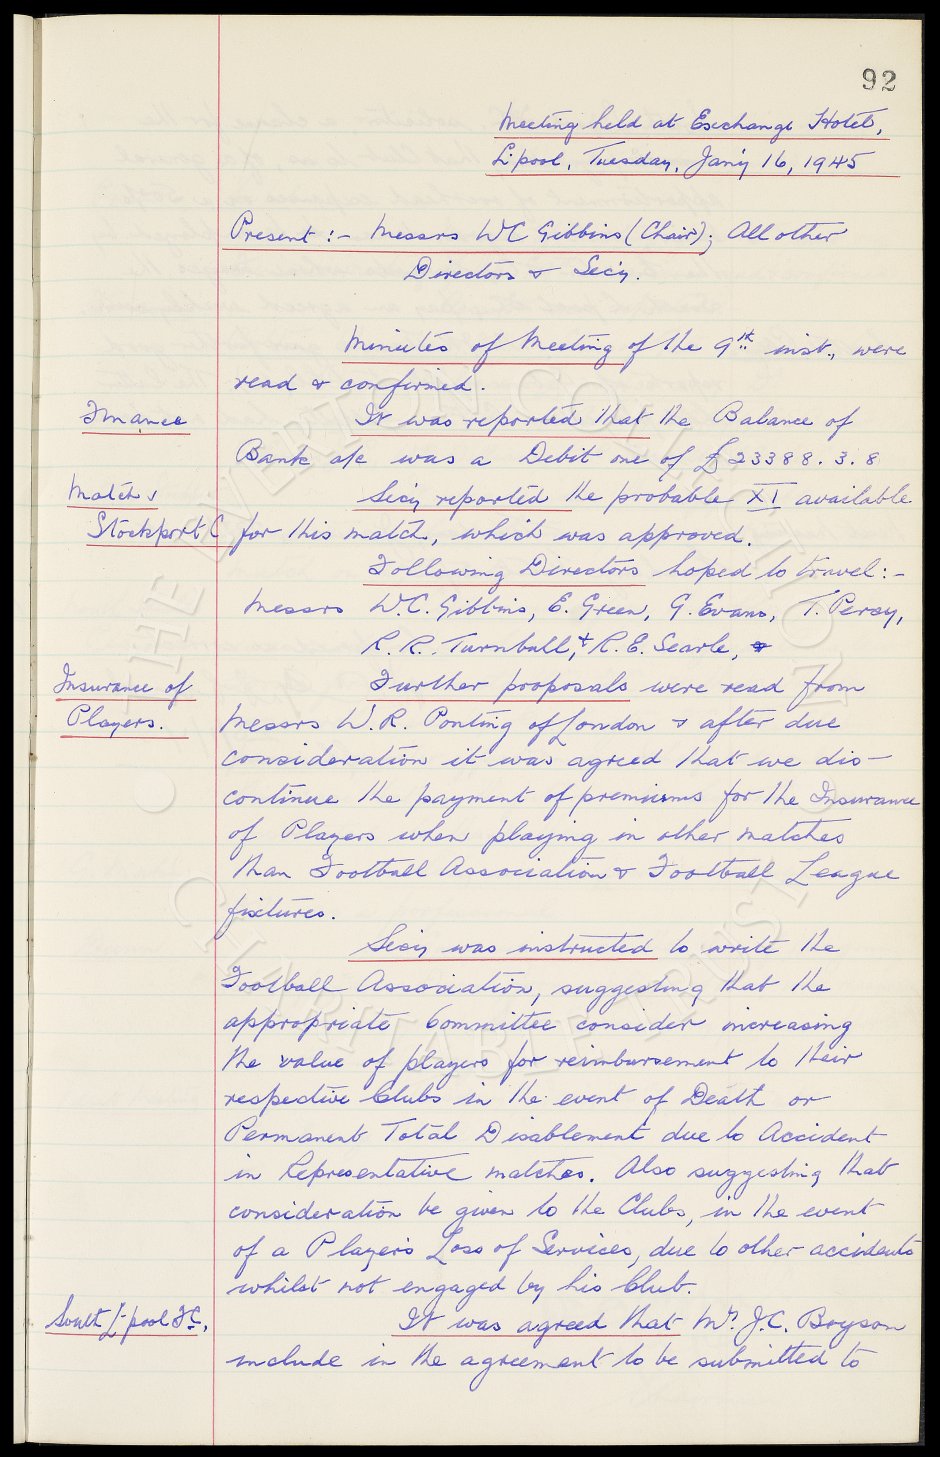 92
Meeting held at Exchange Hotel,
L'pool, Tuesday, Jan'y 16, 1945
Present :- Messrs W C Gibbins (Chair); All other
Directors & Secy.
Minutes of Meeting of the 9th inst., were
read & confirmed.
Finance
It was reported that the Balance of
Bank a/c was a Debit one of £23388. 3. 8
Match v
Secy reported the probable XI available
Stockport C
for this match, which was approved.
Following Directors hoped to travel :-
Messrs W.C. Gibbins, E. Green, G. Evans, T. Percy,
R. R. Turnbull, & R. E. Searle,
Insurance of
Further proposals were read from
Players.
Messrs W. R. Ponting of London & after due
consideration it was agreed that we dis-
continue the payment of premiums for the Insurance
of Players when playing in other matches
than Football Association & Football League
fixtures.
Secy was instructed to write the
Football Association, suggesting that the
appropriate Committee consider increasing
the value of players for reimbursement to their
respective Clubs in the event of Death or
Permanent Total Disablement due to Accident
in Representative matches. Also suggesting that
consideration be given to the Clubs, in the event
of a Player's Loss of Services, due to other accidents
whilst not engaged by his Club.
South L'pool F.C.,
It was agreed that Mr. J.C. Bryson
include in the agreement to be submitted to
THE EVERTON COLLECTION
CHARITABLE TRUST